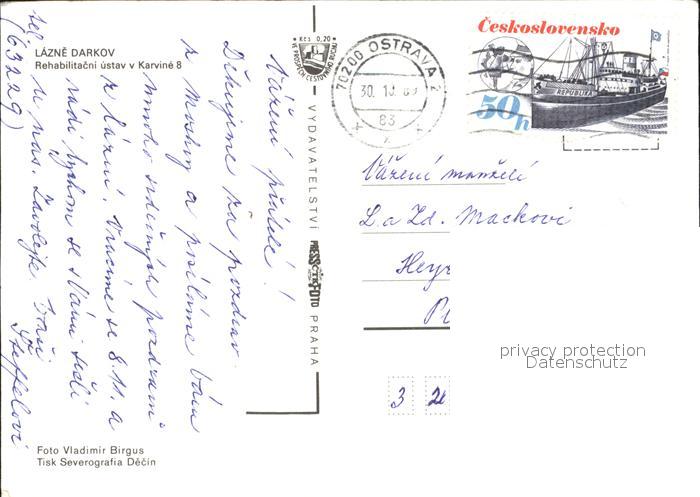 LÁZNĚ DARKOV
Rehabilitační ústav v Karviné 8
Vážení přátelé!
Děkujeme za pozdrav
z a posíláme Vám
mnoho srdečných pozdravů
z lázní. Vracíme se 8.11. a
rádi bychom se s Vámi sešli
u nás. Zavolejte. Vaši
Steffelovi
tel
(63229)
Foto Vladimír Birgus
Tisk Severografia Děčín
Kčs 0,20
VYDAVATELSTVÍ PRESSFOTO PRAHA
70200 OSTRAVA 2
30. 10. 89
83
Československo
REPUBLIKA
50h
Vážení manželé
L. a Zd. Mackovi
Hey
P
3 2
privacy protection
Datenschutz